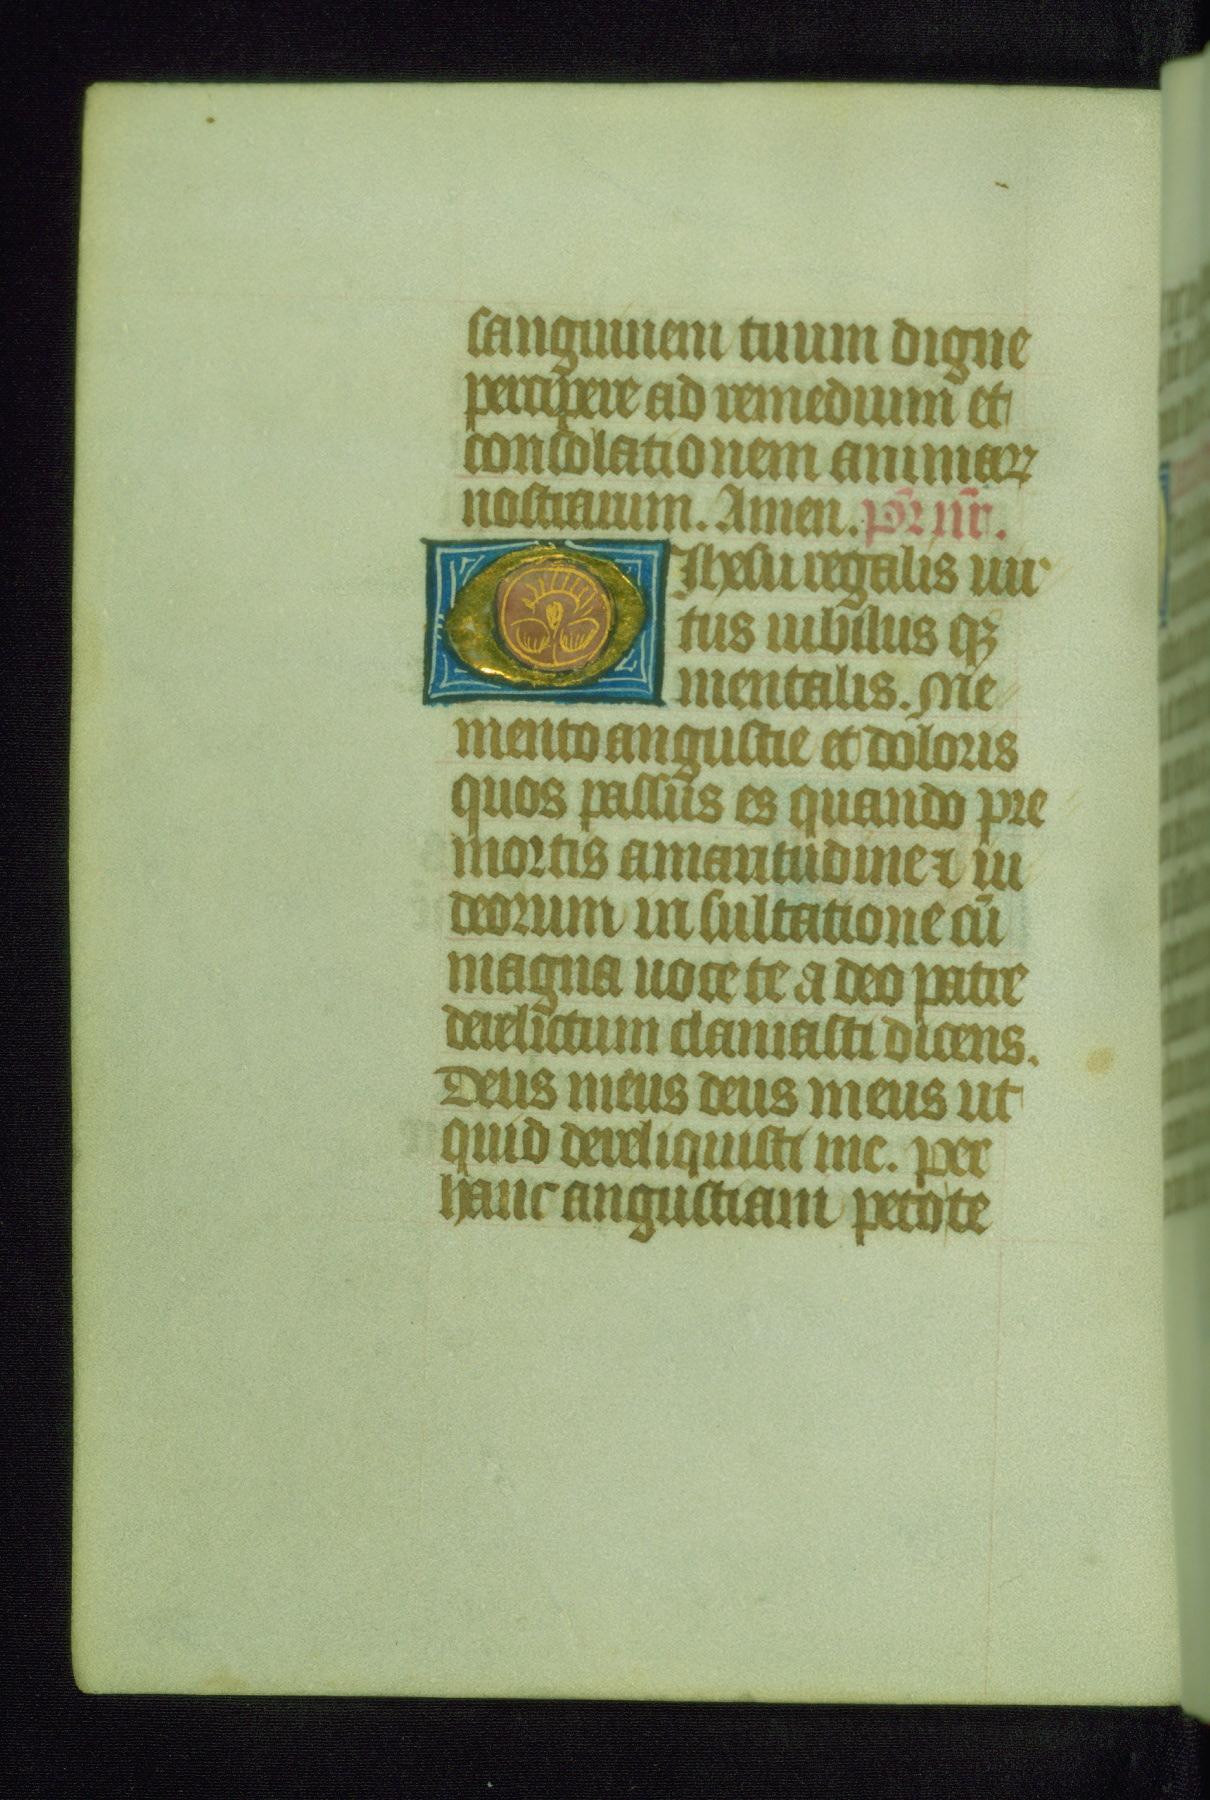 sanguinem tuum digne
percipere ad remedium et
consolationem animaꝝ
nostrarum. Amen. pr̄ nr̄.
O Jhesu regalis uir
tus iubilus qꝫ
mentalis. Me
mento angustie et doloris
quos passus es quando pre
mortis amaritudine ⁊ iu
deorum in sultatione cū
magna uoce te a deo patre
derelictum clamasti dicens.
Deus meus deus meus ut
quid dereliquisti me. per
hanc angustiam peto te